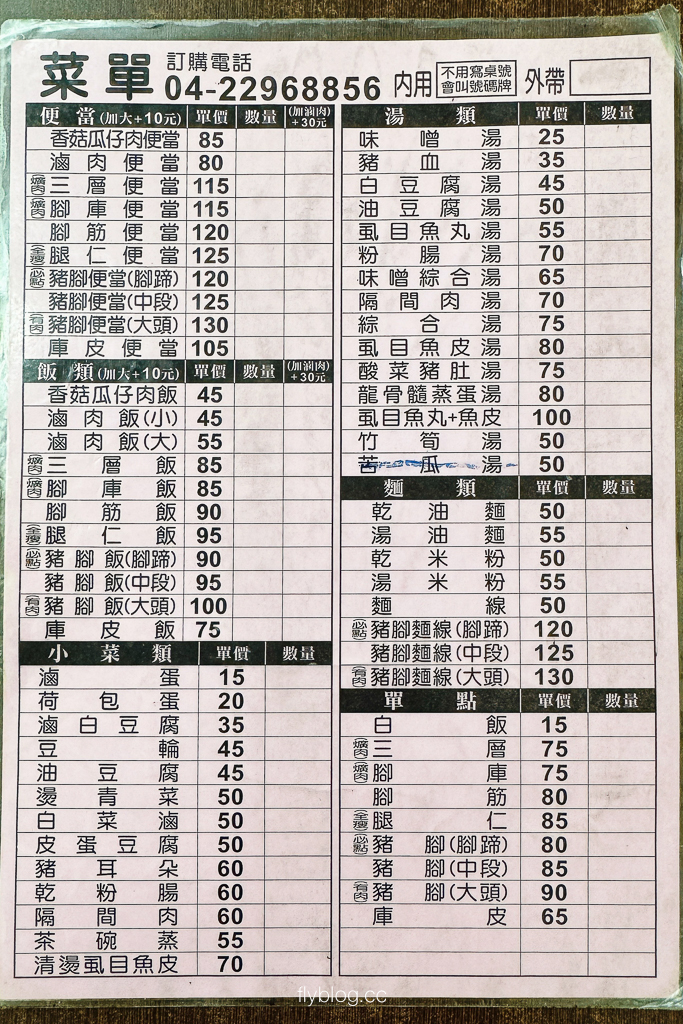 菜單 訂購電話 04-22968856 內用 不用寫桌號 會叫號碼牌 外帶
便當(加大+10元) 單價 數量 (加滷肉)+30元
香菇瓜仔肉便當 85
滷肉便當 80
(爌肉)三層便當 115
(爌肉)腳庫便當 115
腳筋便當 120
(全瘦)腿仁便當 125
(必點)豬腳便當(腳蹄) 120
豬腳便當(中段) 125
(有肉)豬腳便當(大頭) 130
庫皮便當 105
飯類(加大+10元) 單價 數量 (加滷肉)+30元
香菇瓜仔肉飯 45
滷肉飯(小) 45
滷肉飯(大) 55
(爌肉)三層飯 85
(爌肉)腳庫飯 85
腳筋飯 90
(全瘦)腿仁飯 95
(必點)豬腳飯(腳蹄) 90
豬腳飯(中段) 95
(有肉)豬腳飯(大頭) 100
庫皮飯 75
小菜類 單價 數量
滷蛋 15
荷包蛋 20
滷白豆腐 35
豆輪 45
油豆腐 45
燙青菜 50
白菜滷 50
皮蛋豆腐 50
豬耳朵 60
乾粉腸 60
隔間肉 60
茶碗蒸 55
清燙虱目魚皮 70
湯類 單價 數量
味噌湯 25
豬血湯 35
白豆腐湯 45
油豆腐湯 50
虱目魚丸湯 55
粉腸湯 70
味噌綜合湯 65
隔間肉湯 70
綜合湯 75
虱目魚皮湯 80
酸菜豬肚湯 75
龍骨髓蒸蛋湯 80
虱目魚丸+魚皮 100
竹筍湯 50
苦瓜湯 50
麵類 單價 數量
乾油麵 50
湯油麵 55
乾米粉 50
湯米粉 55
麵線 50
(必點)豬腳麵線(腳蹄) 120
豬腳麵線(中段) 125
(有肉)豬腳麵線(大頭) 130
單點 單價 數量
白飯 15
(爌肉)三層 75
(爌肉)腳庫 75
腳筋 80
(全瘦)腿仁 85
(必點)豬腳(腳蹄) 80
豬腳(中段) 85
(有肉)豬腳(大頭) 90
庫皮 65
flyblog.cc